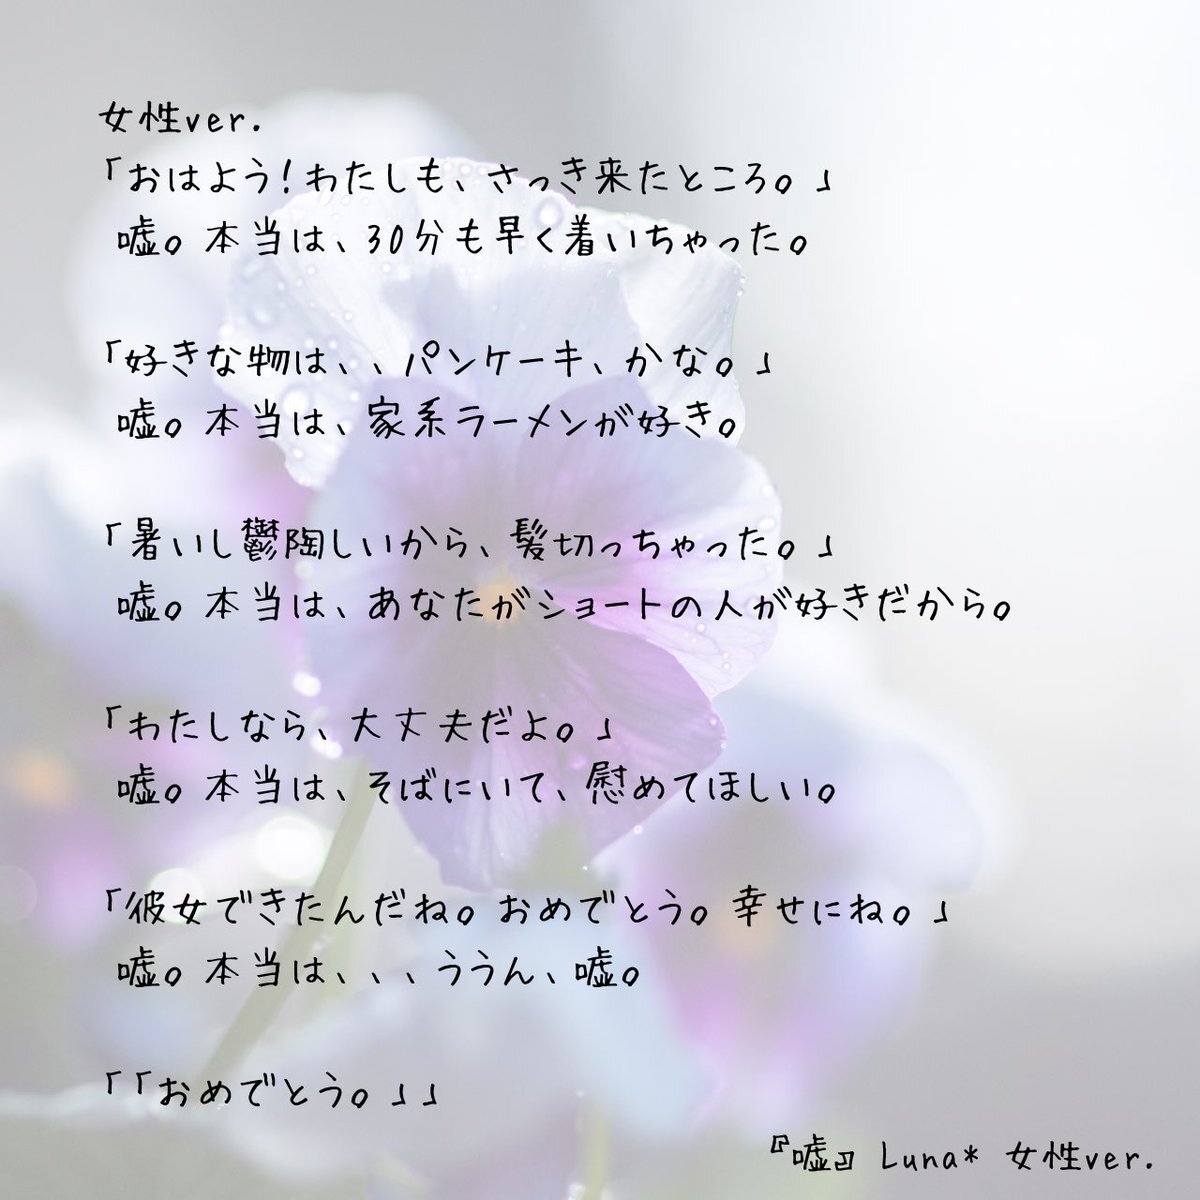 女性ver.
「おはよう!わたしも、さっき来たところ。」
嘘。本当は、30分も早く着いちゃった。
「好きな物は、、パンケーキ、かな。」
嘘。本当は、家系ラーメンが好き。
「暑いし鬱陶しいから、髪切っちゃった。」
嘘。本当は、あなたがショートの人が好きだから。
「わたしなら、大丈夫だよ。」
嘘。本当は、そばにいて、慰めてほしい。
「彼女できたんだね。おめでとう。幸せにね。」
嘘。本当は、、、ううん、嘘。
「「おめでとう。」」
『嘘』 Luna* 女性ver.